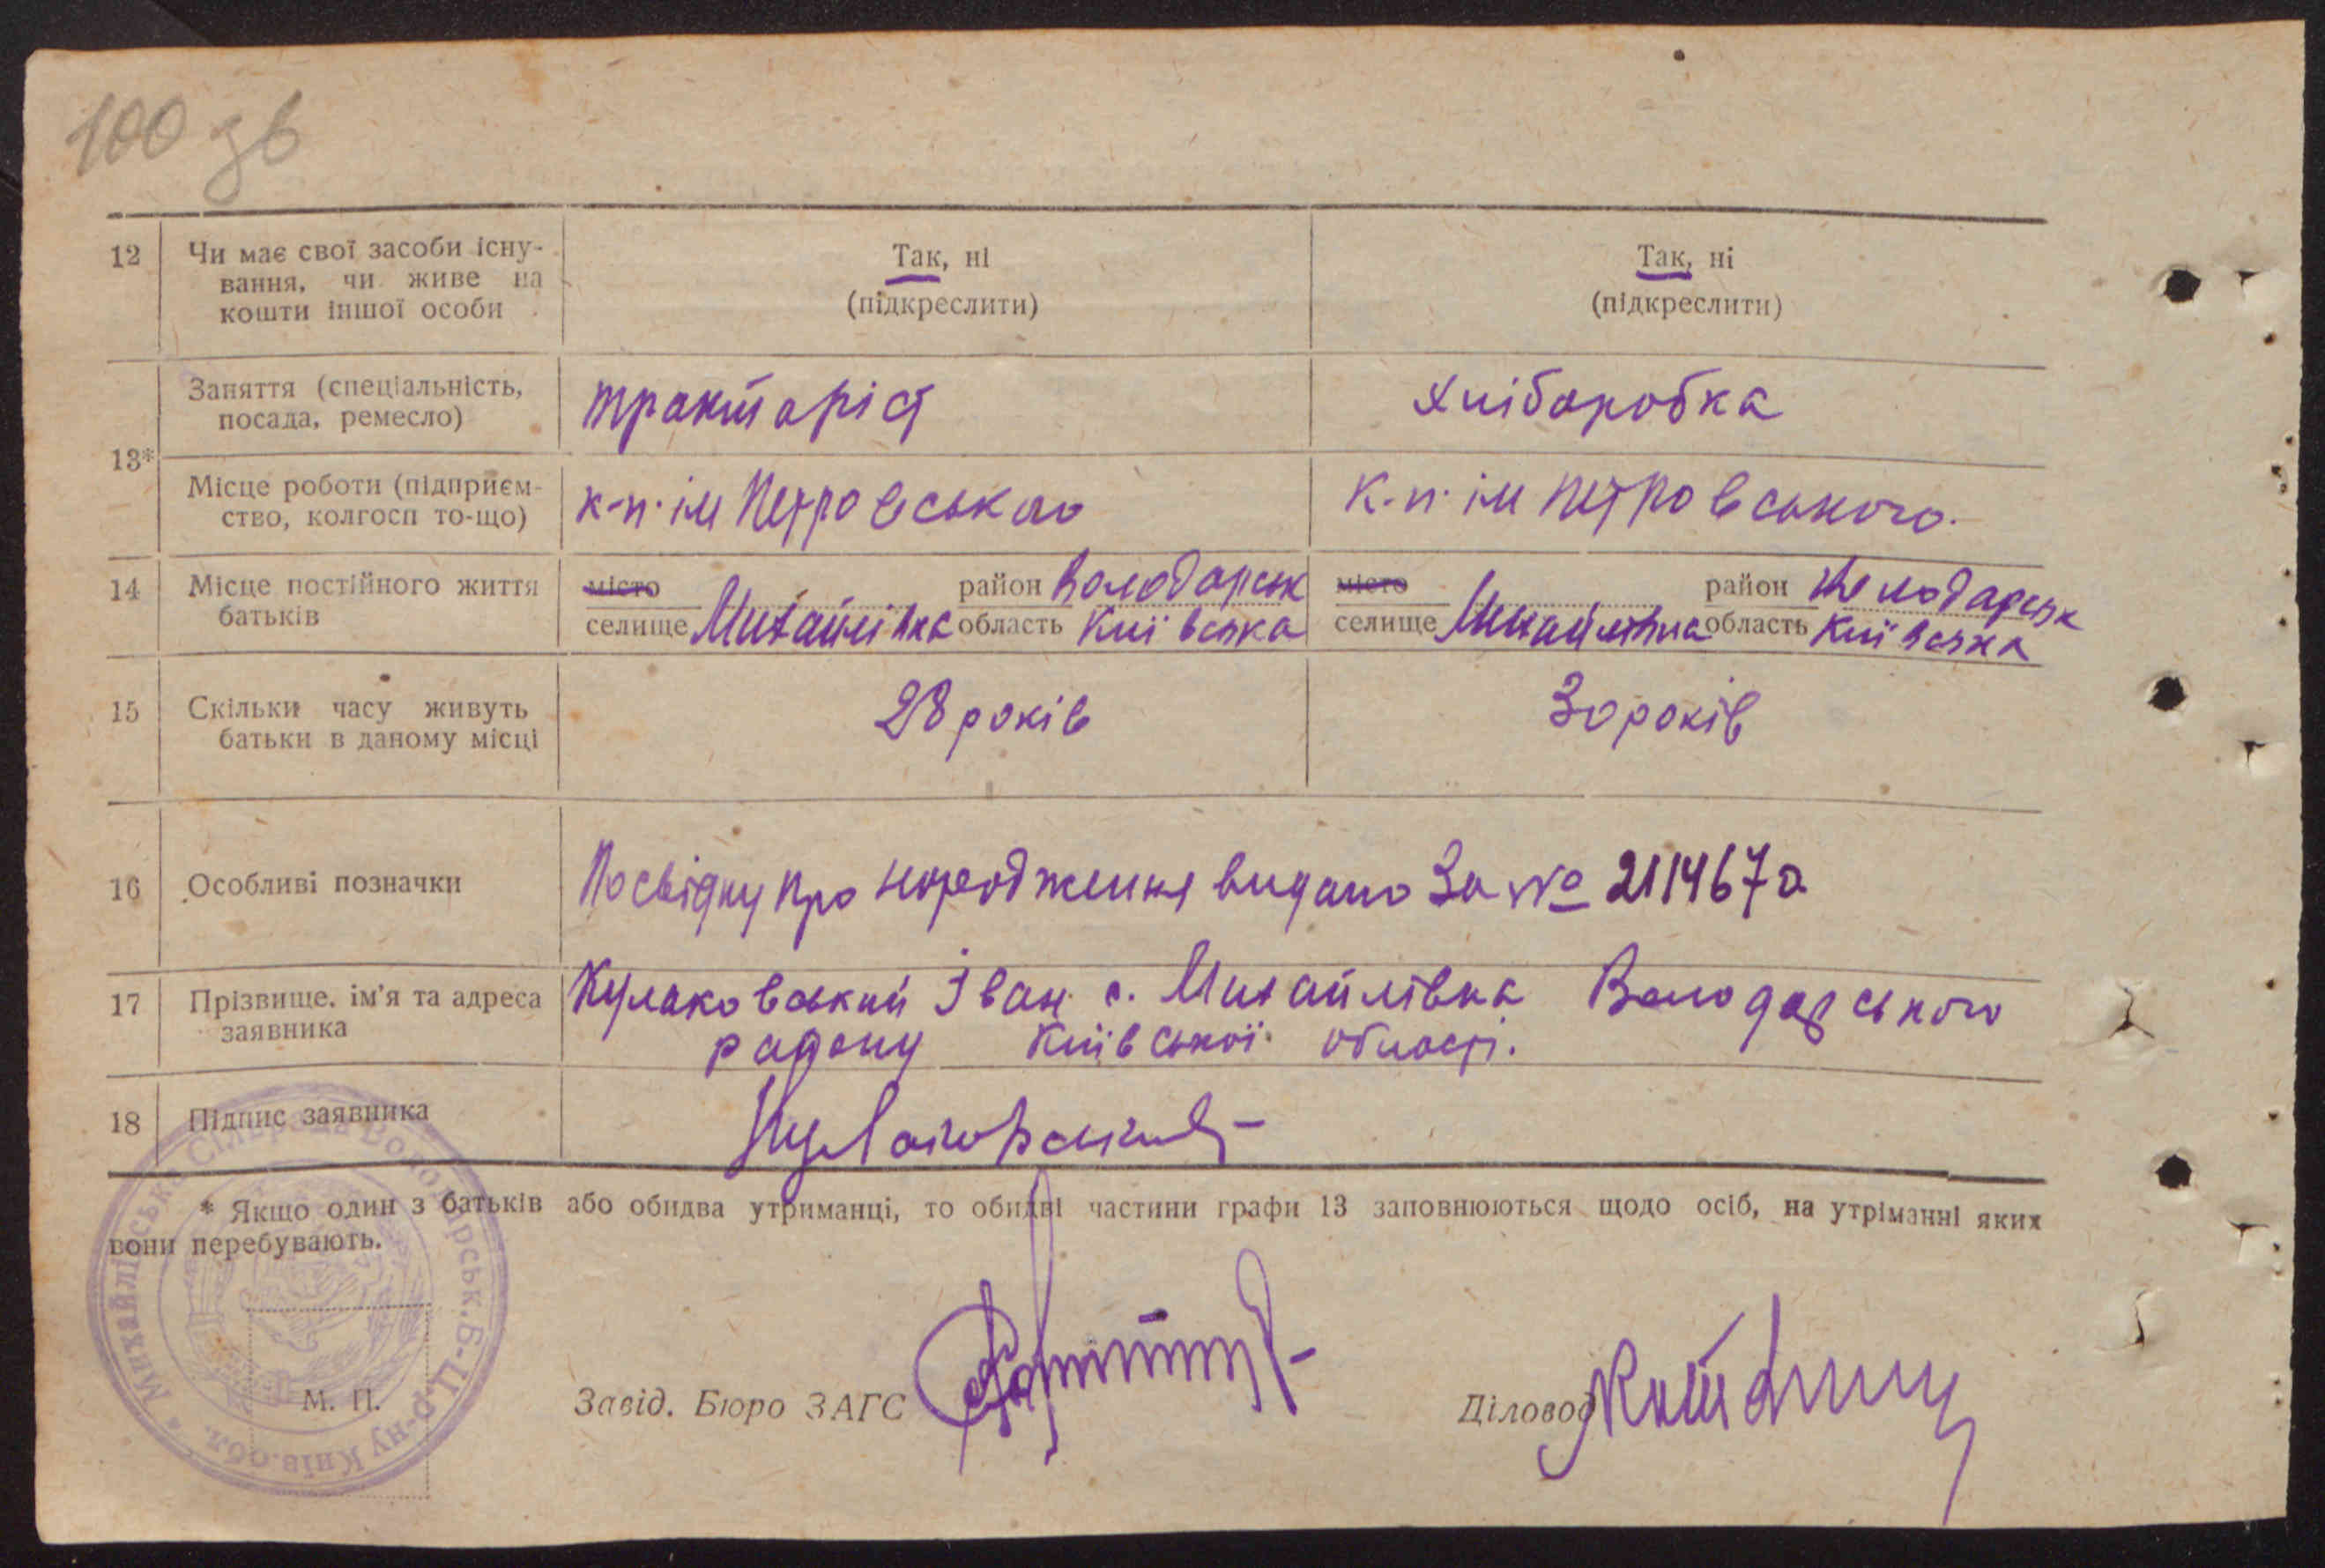 100 зв
12 Чи має свої засоби існу- Так, ні Так, ні
вання, чи живе на (підкреслити) (підкреслити)
кошти іншої особи
Заняття (спеціальність, тракторіст хліборобка
посада, ремесло)
13*
Місце роботи (підприєм- к-п. ім Петровського к.п. ім Петровського.
ство, колгосп то-що)
14 Місце постійного життя місто район Володарськ місто район Володарськ
батьків селище Михайлівка область Київська селище Михайлівка область Київська
15 Скільки часу живуть 28 років 30 років
батьки в даному місці
16 Особливі позначки Посвідку про народження видано За № 2114670
17 Прізвище, ім'я та адреса Кулаковський Іван с. Михайлівка Володарського
заявника району Київської області.
18 Підпис заявника Кулаковський
* Якщо один з батьків або обидва утриманці, то обидві частини графи 13 заповнюються щодо осіб, на утріманні яких
вони перебувають.
М. П. Завід. Бюро ЗАГС Діловод